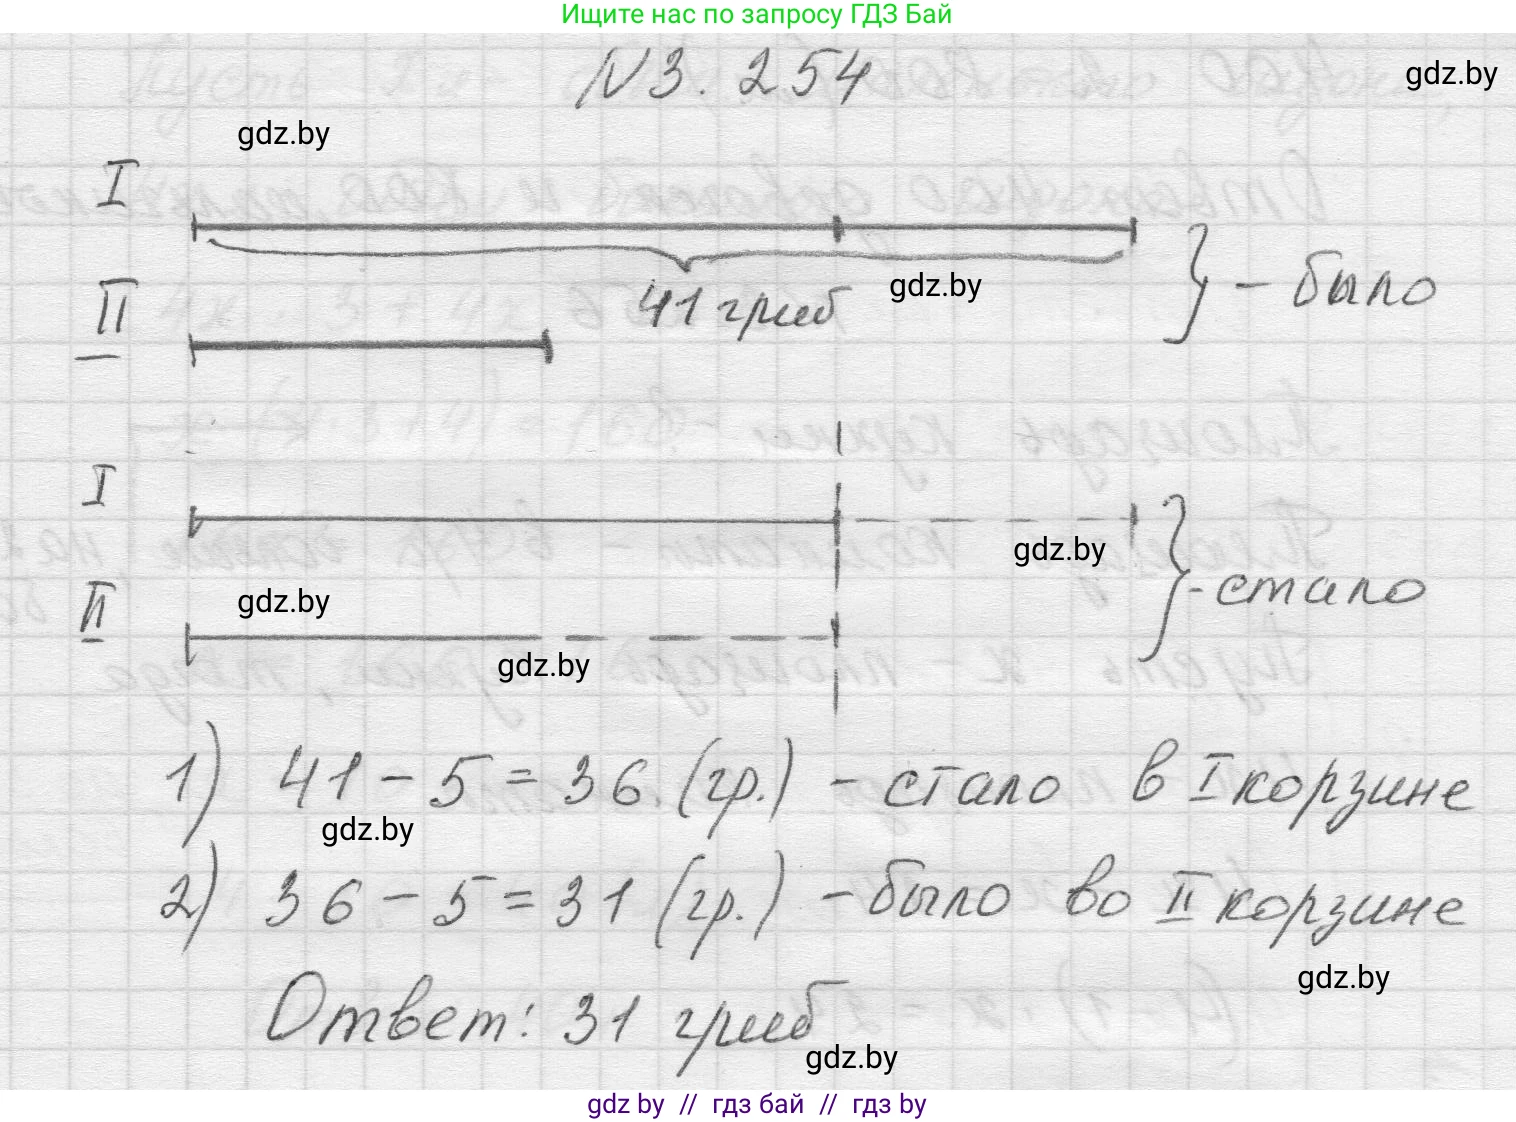 Ищите нас по запросу ГДЗ Бай
N 3. 254
gdz.by
gdz.by
I
41 гриб
gdz.by
} - было
II
I
gdz.by
} - стало
II
gdz.by
gdz.by
1) 41 - 5 = 36 (гр.) - стало в I корзине
gdz.by
2) 36 - 5 = 31 (гр.) - было во II корзине
gdz.by
Ответ: 31 гриб
gdz.by
gdz by // гдз бай // гдз by